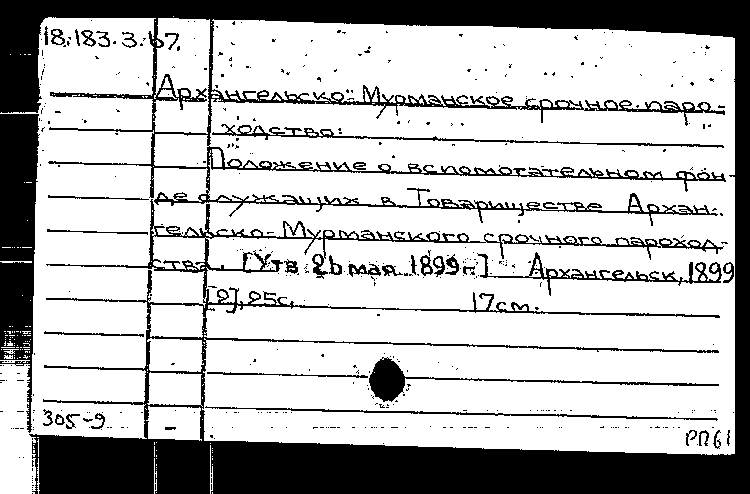 18.183.3.67.
Архангельско-Мурманское срочное паро-
ходство.
Положение о вспомогательном фон-
де служащих в Товариществе Архан-
гельско-Мурманского срочного пароход-
ства. [Утв 26 мая 1899 г.] Архангельск, 1899
[2], 25с. 17см.
305-9 РП61